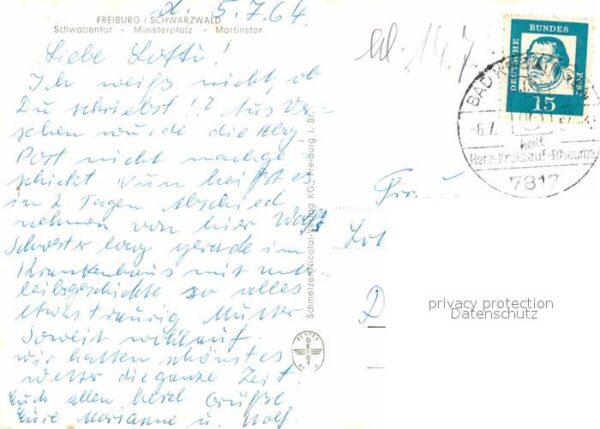 d. 5.7.64
FREIBURG / SCHWARZWALD
Schwabentor · Münsterplatz · Martinstor
Liebe Lotti!
Ich weiß nicht, ob
Du schriebst!? Aus Ver-
sehen wurde die Hbg
Post nicht nachge
schickt. Nun heißt es
in 2 Tagen Abschied
nehmen von hier.
Schwester lag gerade im
Krankenhaus mit
leibsgeschichte so alles
etwas traurig Mutter
soweit wohlauf.
wir hatten schönstes
wetter die ganze Zeit.
Euch allen herzl Grüße
Eure Marianne u. Rolf.
Schmelzer/Nicolai-Verlag KG., Freiburg i. Br.
14.7.
DEUTSCHE BUNDESPOST
15
BAD
-6.7.
heilt
Herz-Kreislauf-Rheuma
7812
Frau
D
privacy protection
Datenschutz